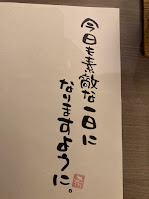 今日も素敵な一日に
なりますように。